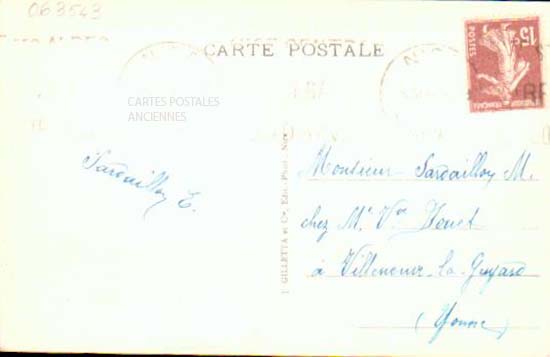 063543
CARTE POSTALE
NICE
15c
POSTES
CARTES POSTALES
ANCIENNES
Sardaillon E.
Monsieur Sardaillon M.
chez Mr Vor
à Villeneuve-la-Guyard
(Yonne)
GILLETTA et Cie, Edit. Phot. Nice